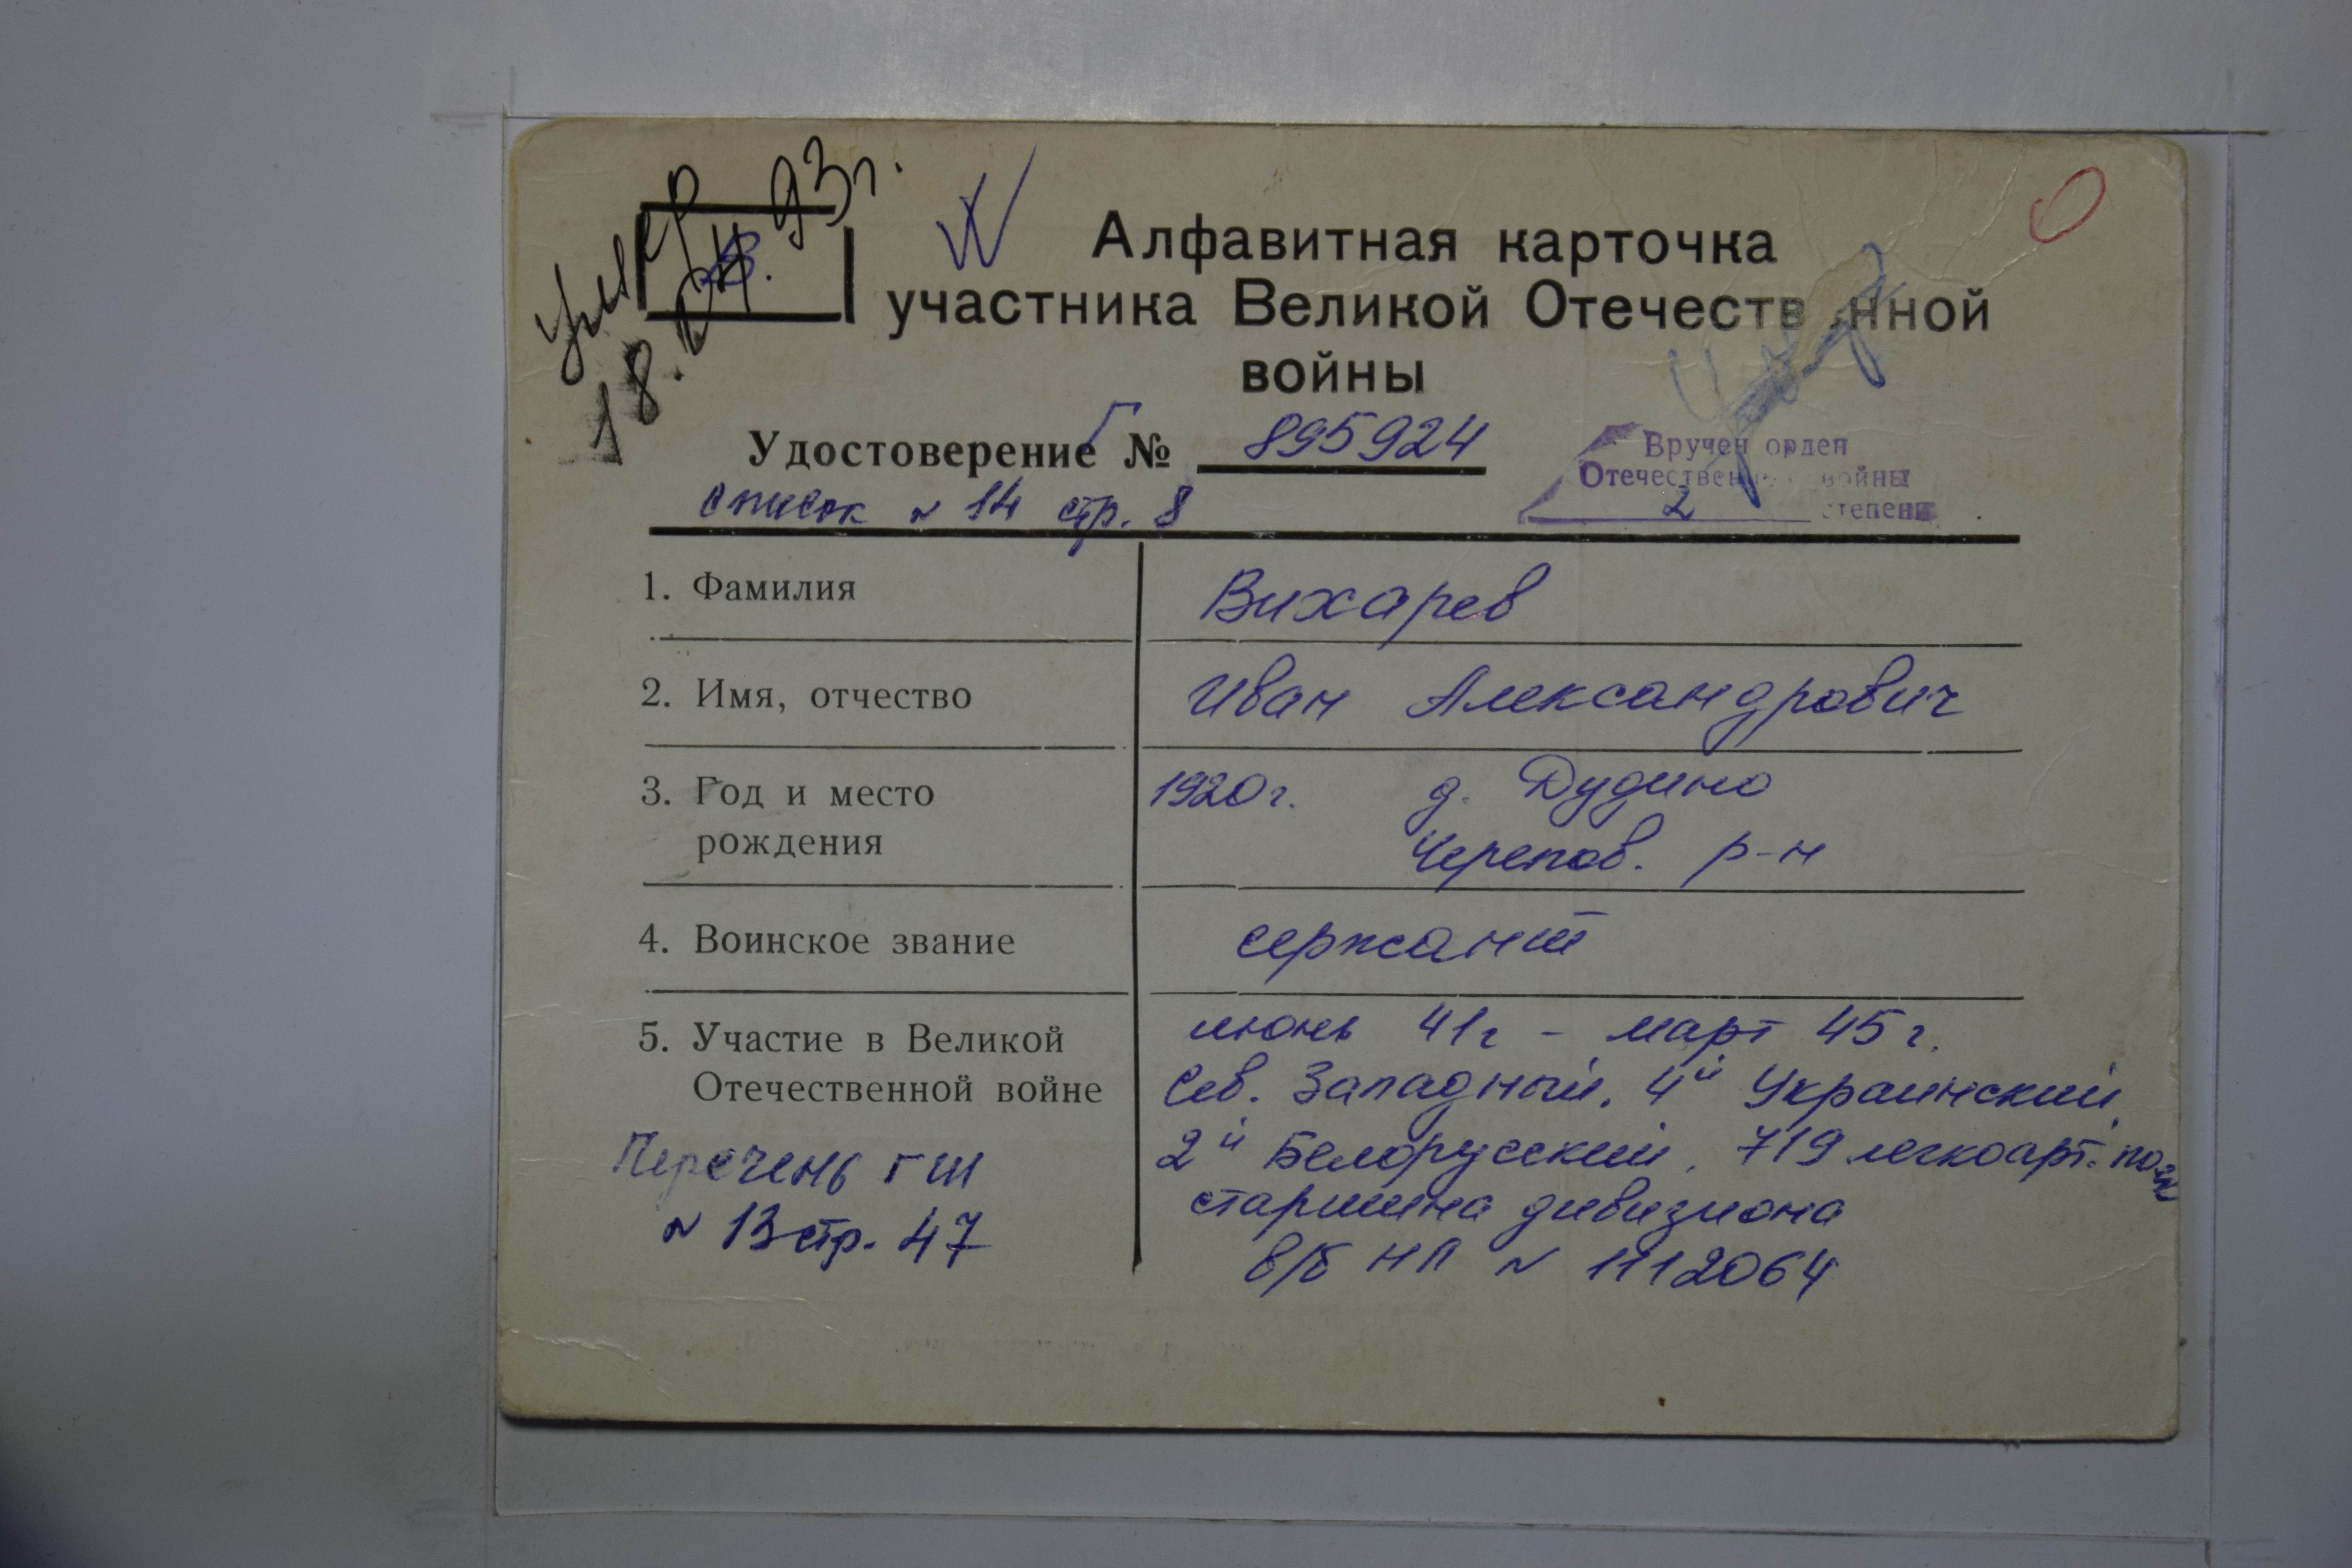 умер
18.04.93г.
В
Алфавитная карточка
участника Великой Отечеств нной
войны
Удостоверение Г № 895924
список № 14 стр. 8
Вручен орден
Отечествен войны
2 степени
1. Фамилия
Вихарев
2. Имя, отчество
Иван Александрович
3. Год и место
рождения
1920г. д. Дудино
Черепов. р-н
4. Воинское звание
сержант
5. Участие в Великой
Отечественной войне
июнь 41г - март 45г.
Сев. Западный, 4й Украинский,
2й Белорусский, 719 легкоарт. полк
старшина дивизиона
в/б НП № 1112064
Перечень ГШ
№ 13 стр. 47